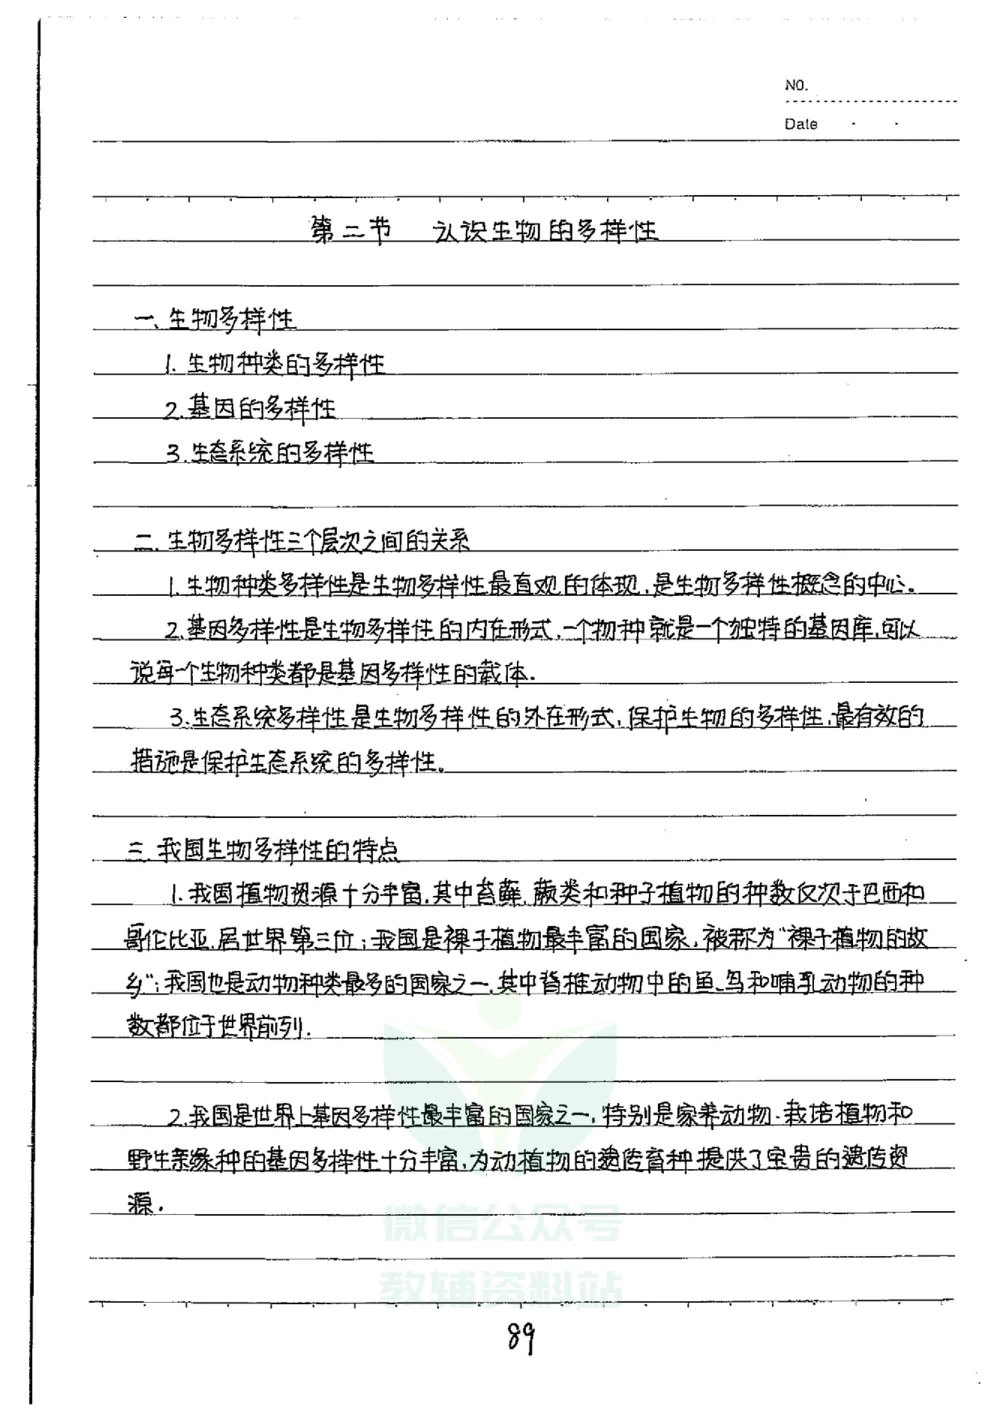 NO.
Date
第二节 认识生物的多样性
一、生物多样性
1. 生物种类的多样性
2. 基因的多样性
3. 生态系统的多样性
二. 生物多样性三个层次之间的关系
1. 生物种类多样性是生物多样性最直观的体现,是生物多样性概念的中心。
2. 基因多样性是生物多样性的内在形式,一个物种就是一个独特的基因库,可以
说每一个生物种类都是基因多样性的载体.
3. 生态系统多样性是生物多样性的外在形式,保护生物的多样性,最有效的
措施是保护生态系统的多样性。
三. 我国生物多样性的特点
1. 我国植物资源十分丰富,其中苔藓、蕨类和种子植物的种数仅次于巴西和
哥伦比亚,居世界第三位;我国是裸子植物最丰富的国家,被称为“裸子植物的故
乡”;我国也是动物种类最多的国家之一,其中脊椎动物中的鱼、鸟和哺乳动物的种
数都位于世界前列.
2. 我国是世界上基因多样性最丰富的国家之一,特别是家养动物、栽培植物和
野生亲缘种的基因多样性十分丰富,为动植物的遗传育种提供了宝贵的遗传资
源.
微信公众号
教辅资料站
89